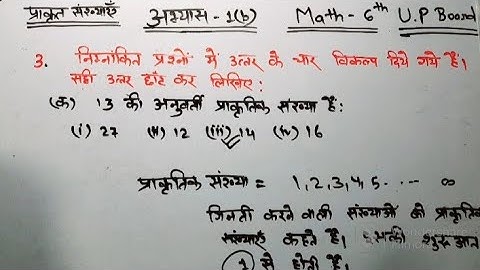 प्राकृत संख्याएँ अभ्यास - 1(b) Math - 6th U.P Board
3. निम्नांकित प्रश्नों में उत्तर के चार विकल्प दिये गये हैं।
सही उत्तर छाँट कर लिखिए:
(क) 13 की अनुवर्ती प्राकृतिक संख्या हैं:
(i) 27 (ii) 12 (iii) 14 (iv) 16
प्राकृतिक संख्या = 1, 2, 3, 4, 5 ----- ∞
गिनती करने वाली संख्याओं को प्राकृतिक
संख्याएँ कहते हैं। इसकी शुरुआत
1 से होती हैं।